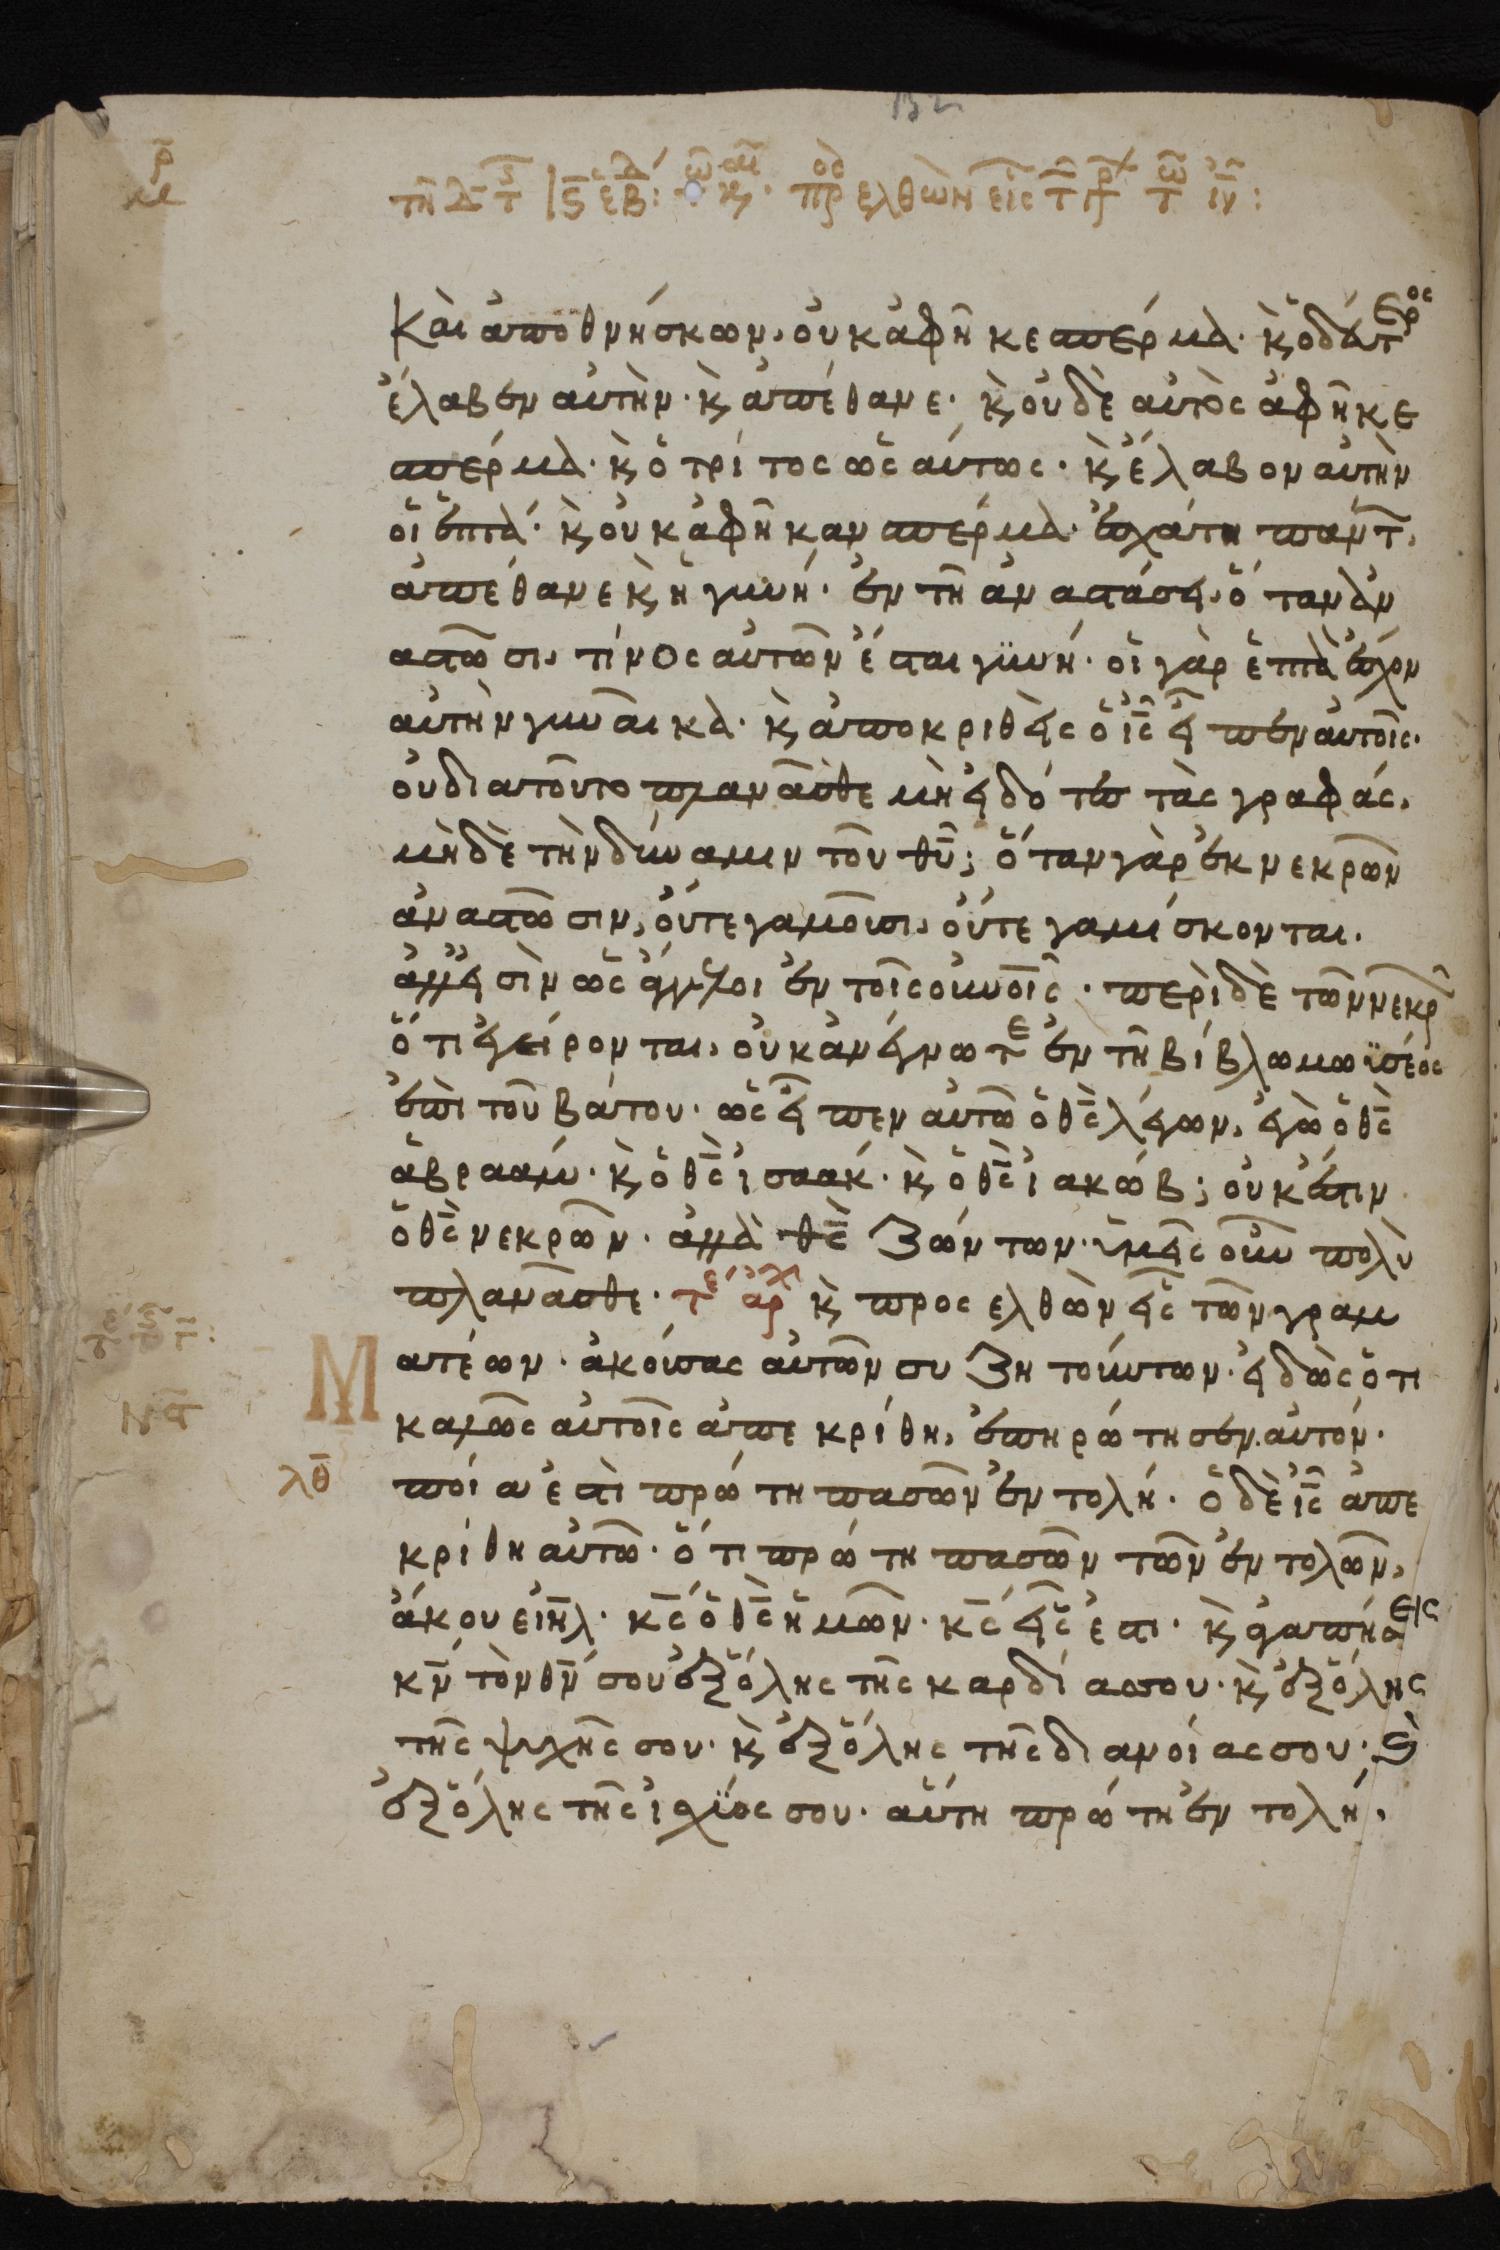 και ἀποθνήσκων, οὐκ ἀφῆκε σπέρμα· κ ὁ δεύτερος
ἔλαβεν αὐτὴν· κ ἀπέθανε· κ οὐδὲ αὐτὸς ἀφῆκε
σπέρμα· κ ὁ τρίτος ὡς αύτως· κ ἔλαβον αὐτὴν
οἱ ἑπτά· κ οὐκ ἀφῆκαν σπέρμα· ἐσχάτη παντ̄,
ἀπέθανε κ ἡ γυνή· ἐν τῆ ἀναστάσει, ὅταν ἀν
αστῶσι, τίνος αὐτῶν ἔσται γυνή· οἱ γὰρ ἑπτὰ ἔσχον
αὐτὴν γυναῖκα· κ ἀποκριθεὶς ὁ ις εἶπεν αὐτοῖς·
οὐ διατοῦτο πλανᾶσθε μὴ εἰδότες τὰς γραφάς,
μὴδὲ τὴν δύναμιν τοῦ θυ; ὅταν γὰρ ἐκ νεκρῶν
ἀναστῶσιν, οὔτε γαμοῦσι, οὔτε γαμίσκονται.
ἀλλ' εἰσὶν ὡς ἄγγελοι ἐν τοῖς οὐνοῖς· περὶ δὲ τῶν νεκρ
ὅτι ἐγείρονται, οὐκ ἀνέγνωτε ἐν τῆ βίβλω μωϋσέος
ἐπὶ τοῦ βάτου· ὡς εἶπεν αὐτῶ ὁ θς λέγων, ἐγὼ ὁ θς
ἀβραάμ· κ ὁ θς ἰσαάκ· κ ὁ θς ἰακώβ; οὐκ ἔστιν
ὁ θς νεκρῶν· ἀλλὰ θς ζώντων· ὑμεῖς οὖν πολὺ
πλανᾶσθε· κ προσελθὼν εἷς τῶν γραμ
ατέων· ἀκούσας αὐτῶν συζητούντων· εἰδὼς ὅτι
καλῶς αὐτοῖς ἀπεκρίθη, ἐπηρώτησεν αὐτόν·
ποία ἐστὶ πρώτη πασῶν ἐντολή· ὁ δὲ ις ἀπε
κρίθη αὐτῶ· ὅτι πρώτη πασῶν τῶν ἐντολῶν,
ἄκουε ιηλ· κς ὁ θς ἡμῶν· κς εἷς ἐστι· κ ἀγαπήσεις
κν τὸν θν σου ἐξ ὅλης τῆς καρδίας σου· κ ἐξ ὅλης
τῆς ψυχῆς σου· κ ἐξ ὅλης τῆς διανοίας σου· ϗ
ἐξ ὅλης τῆς ἰσχύος σου· αὕτη πρώτη ἐντολή,
λθ